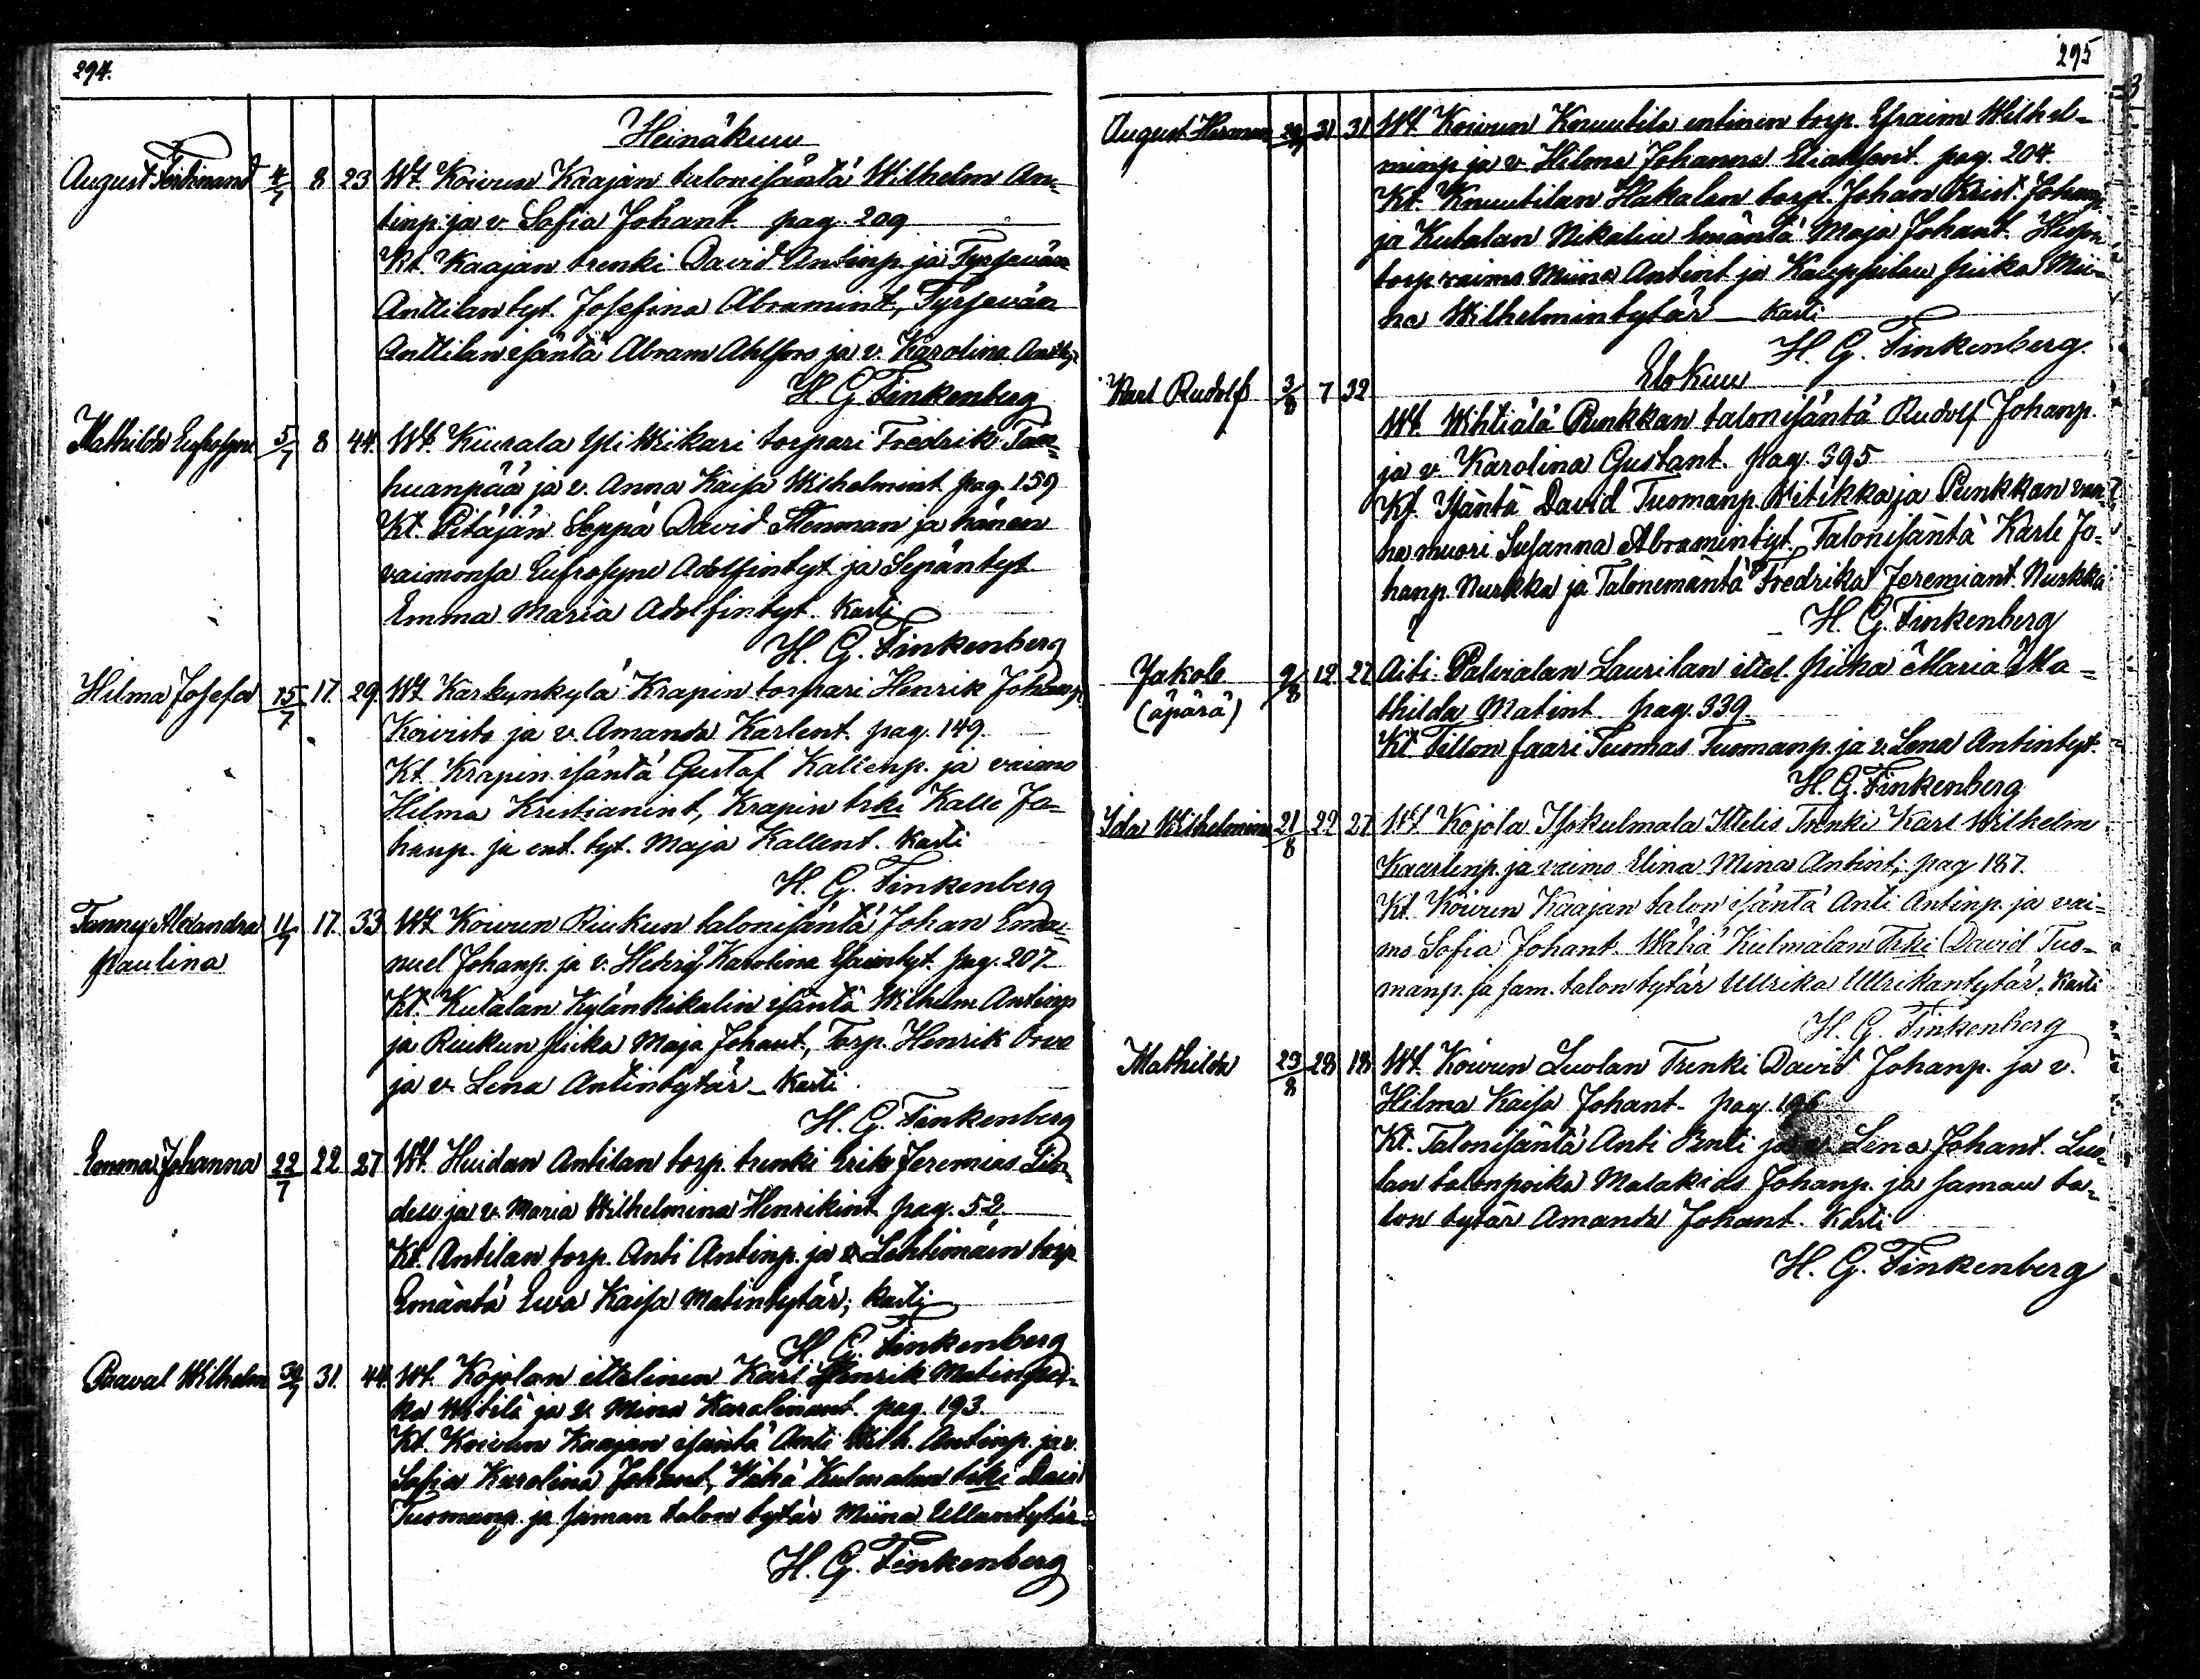 294.
Heinäkuu
August Ferdinand 4/7 8 23 Wt. Koivun Kaajan talonisäntä Wilhelm An-
tinp. ja v. Sofia Johant. pag. 209
Kt. Kaajan trenki David Antinp. ja Tyrsävän
Anttilan tyt. Josefina Abramint., Tyrsävän
Anttilan isäntä Abram Ahlfors ja v. Karolina
H. G. Finkenberg
Mathilda Eufrosyne 5/7 8 44. Wt. Kiurala Yli Wiikari torpari Fredrik Tan-
huanpää ja v. Anna Kaisa Wilhelmint. pag. 159
Kt. Pitäjän Seppä David Stenman ja hänen
vaimonsa Eufrosyne Adolfintyt. ja Sepäntyt.
Emma Maria Adolfintyt. Kasti
H. G. Finkenberg
Hilma Josefa 15/7 17. 29. Wt. Karkunkylä Krapin torpari Henrik Johanp.
Koivisto ja v. Amanda Karlent. pag. 149.
Kt. Krapin isäntä Gustaf Kallenp. ja vaimo
Hilma Kristianint., Krapin trki Kalle Jo-
hanp. ja ent. tyt. Maja Kallent. Kasti
H. G. Finkenberg
Fanny Alexandra 11/7 17. 33 Wt. Koivun Riukun talonisäntä Johan Ema-
Paulina
nuel Johanp. ja v. Hedvig Karolina pag. 207.
Kt. Kutalan Kylän Nikalin isäntä Wilhelm Antinp
ja Riukun piika Maja Johant., Torp. Henrik
ja v. Lena Antintytär – Kasti
H. G. Finkenberg
Emma Johanna 22/7 22 27 Wt. Huidan Antilan torp. trenki Erik Jeremias Lin-
den ja v. Maria Wilhelmina Henrikint. pag. 52.
Kt. Antilan torp. Anti Antinp. ja Lehtimäen torp.
Emäntä Ewa Kaisa Matintytär; Kasti
H. G. Finkenberg
Paaval Wilhelm 30/7 31. 44. Wt. Kojolan ittelinen Karl Henrik Matinpoi-
ka Witilä ja v. Mina Karolinant. pag. 193.
Kt. Koivun Kaajan isäntä Anti Wilh. Antinp. ja v.
Sofia Karolina Johant., Wähä Kulmalan trki David
Tuomanp. ja saman talon tytär Miina Ullantytär.
H. G. Finkenberg
295
August Herman 31 31 Wt. Koivun Knuutila entinen torp. Efraim Wilhel-
minp. ja v. Hilma Johanna pag. 204.
Kt. Knuutilan Hakalan torp. Johan Krist. Johanp.
ja Kutalan Nikalin Emäntä Maja Johant.
torp. vaimo Miina Antint. ja Kauppilan piika Mii-
na Wilhelmintytär – Kasti
H. G. Finkenberg.
Elokuu
Karl Rudolf 3/8 7 32
Wt. Wihtiälä Punkkan talonisäntä Rudolf Johanp.
ja v. Karolina Gustant. pag. 395
Kt. Isäntä David Tuomanp. Witikka ja Punkkan van-
ha muori Susanna Abramintyt., Talonisäntä Karle Jo-
hanp. Nurkka ja Talonemäntä Fredrika Jeremiant. Nurkka
H. G. Finkenberg
Jakob 9/8 12. 27. Äiti. Palvialan Laurilan ittel. piika Maria Ma-
(äpärä)
thilda Matint. pag. 339.
Kt. Tillon faari Tuomas Tuomanp. ja v. Lena Antintyt.
H. G. Finkenberg
Ida Wilhelmina 21/8 22 27 Wt. Kojola Isokulmala Ittelis Trenki Karl Wilhelm
Kaarlenp. ja vaimo Elina Mina Antint., pag 187.
Kt. Koivun Kaajan talon isäntä Anti Antinp. ja vai-
mo Sofia Johant. Wähä Kulmalan Trki David Tuo-
manp. ja sam. talon tytär Ullrika Ullrikantytär. Kasti
H. G. Finkenberg
Mathilda 23/8 28 18 Wt. Koivun Luolan Trenki David Johanp. ja v.
Hilma Kaisa Johant. pag. 196
Kt. Talonisäntä Anti Penti ja v. Lena Johant. Luo-
lan talonpoika Malakias Johanp. ja saman ta-
lon tytär Amanda Johant. Kasti
H. G. Finkenberg